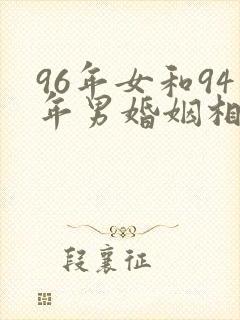 96年女和94
年男婚姻相
段襄征